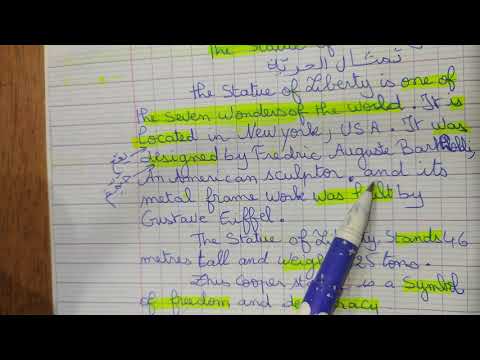 The Statue of
تمثال الحرية
the Statue of Liberty is one of
the seven wonders of the world. It is
Located in New york, USA. It was
designed by Fredric Auguste Bartholdi,
An American sculptor. and its
metal frame work was built by
Gustave Eiffel.
The Statue of Liberty Stands 46
metres tall and weigh 225 tons.
This cooper st is a Symbol
of freedom and de cracy